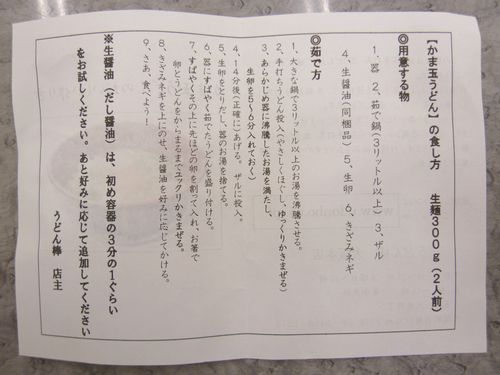 【かま玉うどん】の食し方　　生麺３００ｇ（２人前）
◎用意する物
１、器　２、茹で鍋（３リットル以上）　３、ザル
４、生醤油（同梱品）　５、生卵　６、きざみネギ
◎茹で方
１、大きな鍋で３リットル以上のお湯を沸騰させる。
２、手打ちうどん投入（やさしくほぐし、ゆっくりかきまぜる）
３、あらかじめ器に沸騰したお湯を満たし、
生卵を５～６分入れておく）
４、１４分後（正確に）あげる。ザルに投入。
５、生卵をとりだし、器のお湯を捨てる。
６、器にすばやく茹でたうどんを盛り付ける。
７、すばやくその上に先ほどの卵を割って入れ、お箸で
卵とうどんをからまるまでユックリかきまぜる。
８、きざみネギを上にのせ、生醤油を好みに応じてかける。
９、さあ、食べよう！
※生醤油（だし醤油）は、初め容器の３分の１ぐらい
をお試しください。あと好みに応じて追加してください
うどん棒　店主